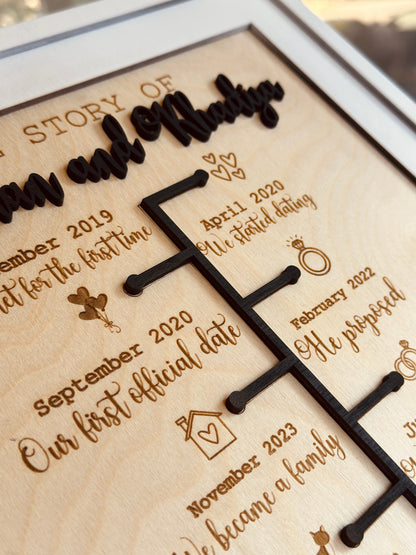 STORY OF
and Rhadiya
2019
for the first time
April 2020
We started dating
September 2020
Our first official date
February 2022
He proposed
November 2023
We became a family